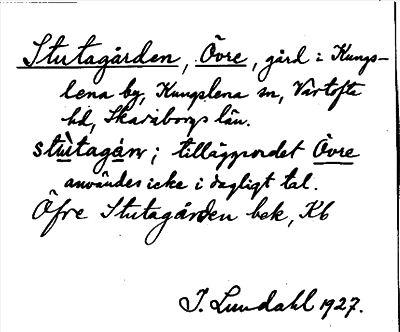 Stutagården, Övre, gård i Kungs-
lena by, Kungslena sn, Vartofta
hd, Skaraborgs län.
stùtagàṇ; tilläggsordet Övre
användes icke i dagligt tal.
Öfre Stutagården bek, Kb
J. Lundahl 1927.